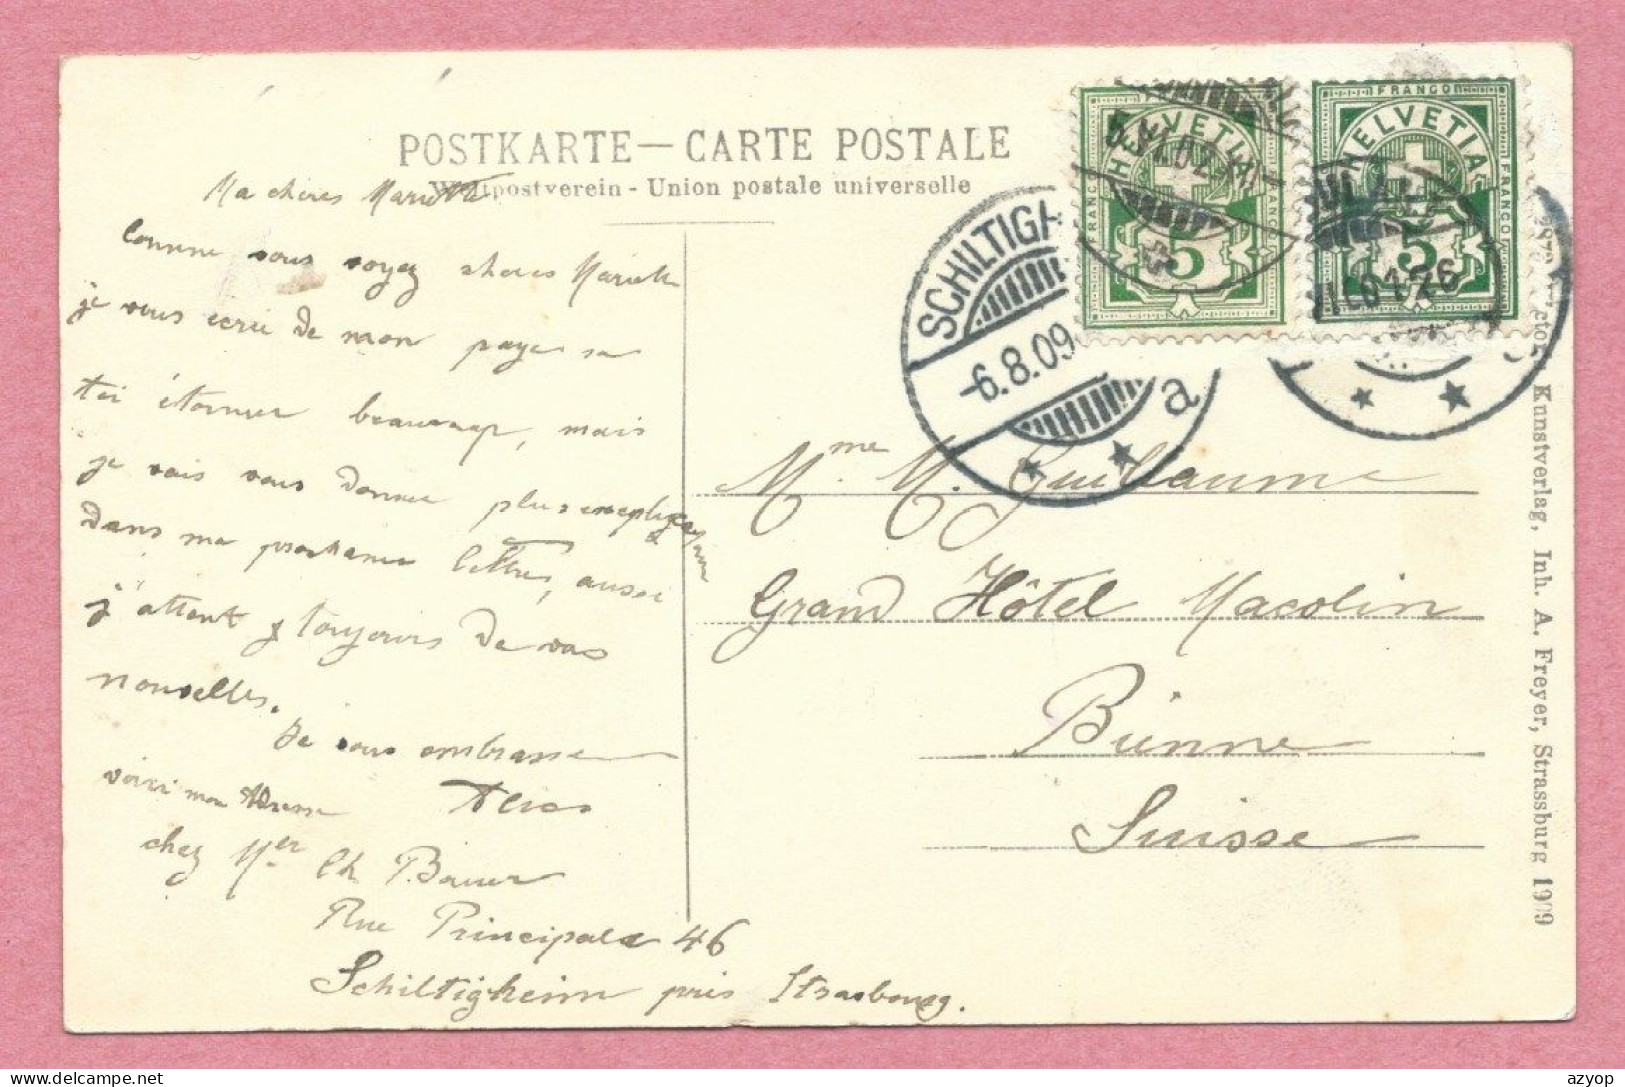 POSTKARTE — CARTE POSTALE
Weltpostverein - Union postale universelle
Ma chères Mariette
Comme vous voyez chères Mariette
je vous ecrie de mon paye sa
toi étonner beaucoup, mais
je vais vous donner plus
dans ma prochaines lettres, aussi
j'attent toujours de vos
nouvelles.
Je vous embrasse
Alice
voici mon Adresse
chez Mer Ch Bauer
Rue Principale 46
Schiltigheim près Strasbourg.
Mme M. Guillaume
Grand Hôtel Macolin
Bienne
Suisse
SCHILTIGH
-6.8.09
a
FRANCO
HELVETIA
FRANCO
5
FRANCO
HELVETIA
FRANCO
5
Kunstverlag, Inh. A. Freyer, Strassburg 1909
azyop